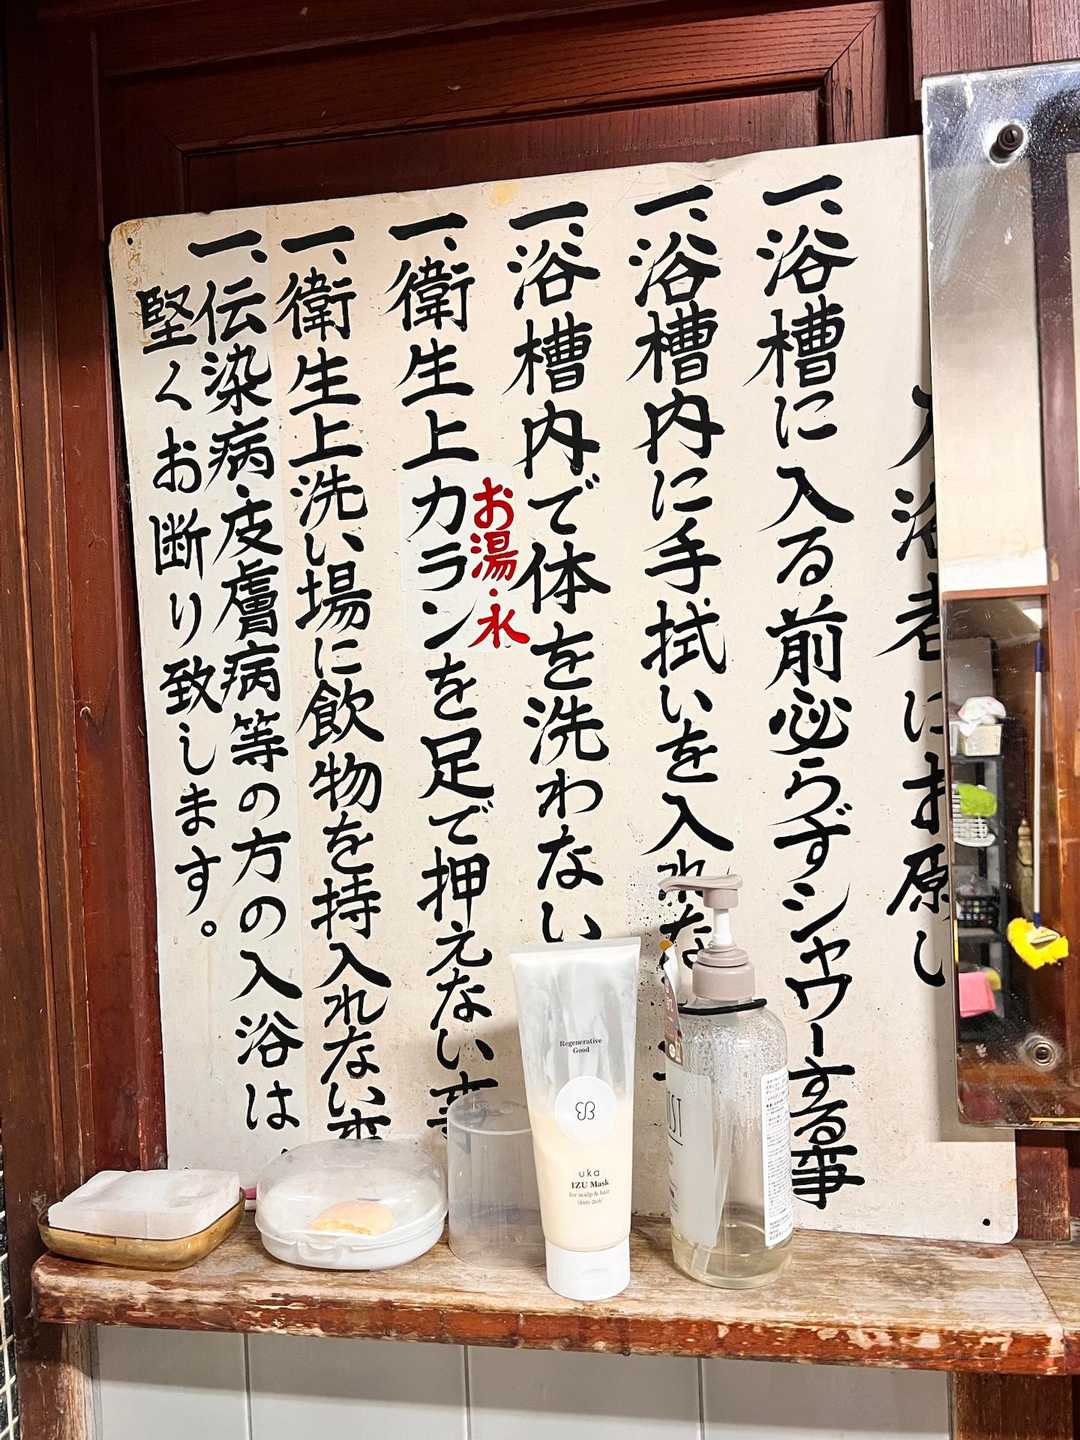 入浴者にお願い
一、浴槽に入る前必らずシャワーする事
一、浴槽内に手拭いを入れな
一、浴槽内で体を洗わない
一、衛生上カランを足で押えない事
お湯・水
一、衛生上洗い場に飲物を持入れない事
一、伝染病皮膚病等の方の入浴は、
堅くお断り致します。
Regenerative
Good
uka
IZU Mask
for scalp & hair